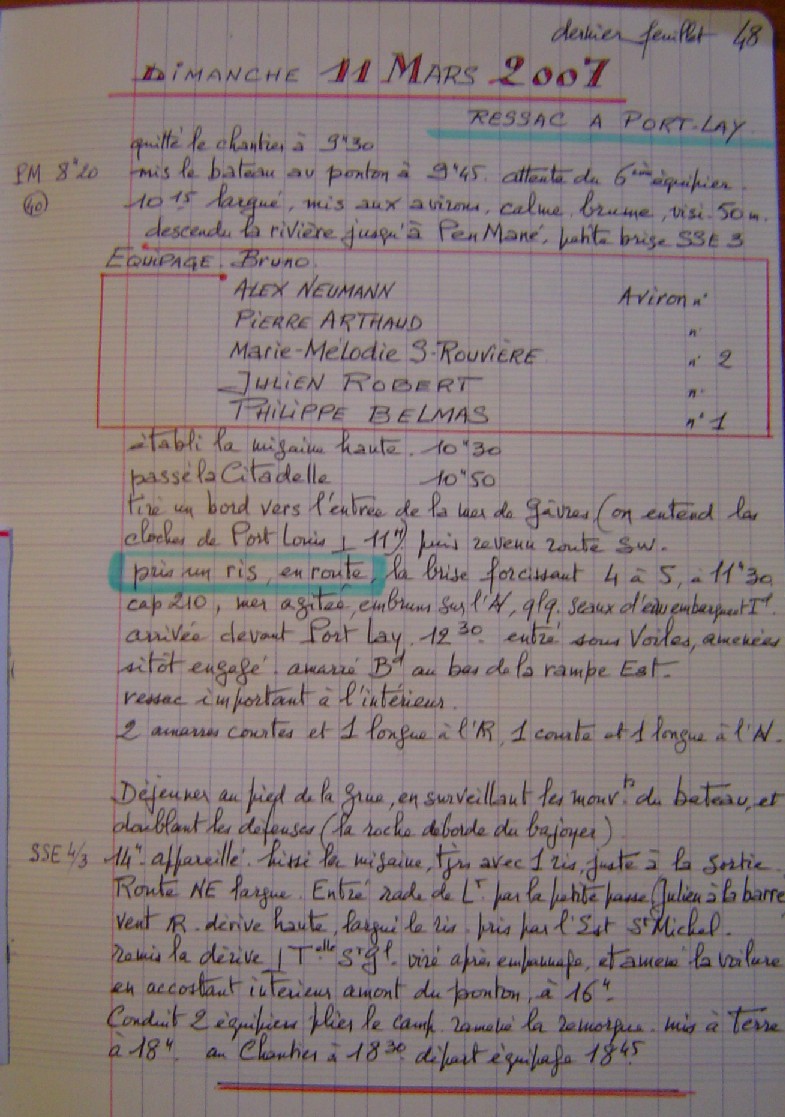 dernier feuillet 48
DIMANCHE 11 MARS 2007
RESSAC A PORT-LAY
quitté le chantier à 9h30
PM 8h20 mis le bateau au ponton à 9h45. attente du 6ème équipier.
40 10 15 largué, mis aux avirons, calme, brume, visi. 50 m.
descendu la rivière jusqu'à Pen Mané, petite brise SSE 3
EQUIPAGE. Bruno.
ALEX NEUMANN Aviron n°
PIERRE ARTHAUD n°
Marie-Mélodie S-ROUVIÈRE n° 2
JULIEN ROBERT n°
PHILIPPE BELMAS n° 1
établi la misaine haute. 10h30
passé la Citadelle 10h50
tiré un bord vers l'entrée de la mer de Gâvres (on entend les
cloches de Port Louis ⊥ 11h) puis revenu route SW.
pris un ris, en route, la brise forcissant 4 à 5, à 11h30
cap 210, mer agitée, embruns sur l'AV, qlq. seaux d'eau embarquent
arrivée devant Port Lay. 12 30 entré sous Voiles, amenées
sitôt engagé. amarré Bd au bas de la rampe Est.
ressac important à l'intérieur.
2 amarres courtes et 1 longue à l'R, 1 courte et 1 longue à l'AV.
Déjeuner au pied de la grue, en surveillant les mouvts du bateau, et
doublant les défenses (la roche déborde du bajoyer)
SSE 4/3 14h. appareillé. hissé la misaine, tjrs avec 1 ris, juste à la sortie.
Route NE largue. Entré rade de Lt par la petite passe (Julien à la barre
vent R. dérive haute, largué le ris. pris par l'Est St Michel.
remis la dérive ⊥ Telle St Gl. viré après empannage, et amené la voilure
en accostant intérieur amont du ponton, à 16h.
Conduit 2 équipiers plier le camp. ramené la remorque. mis à terre
à 18h. au Chantier à 18 30 départ équipage 18 45